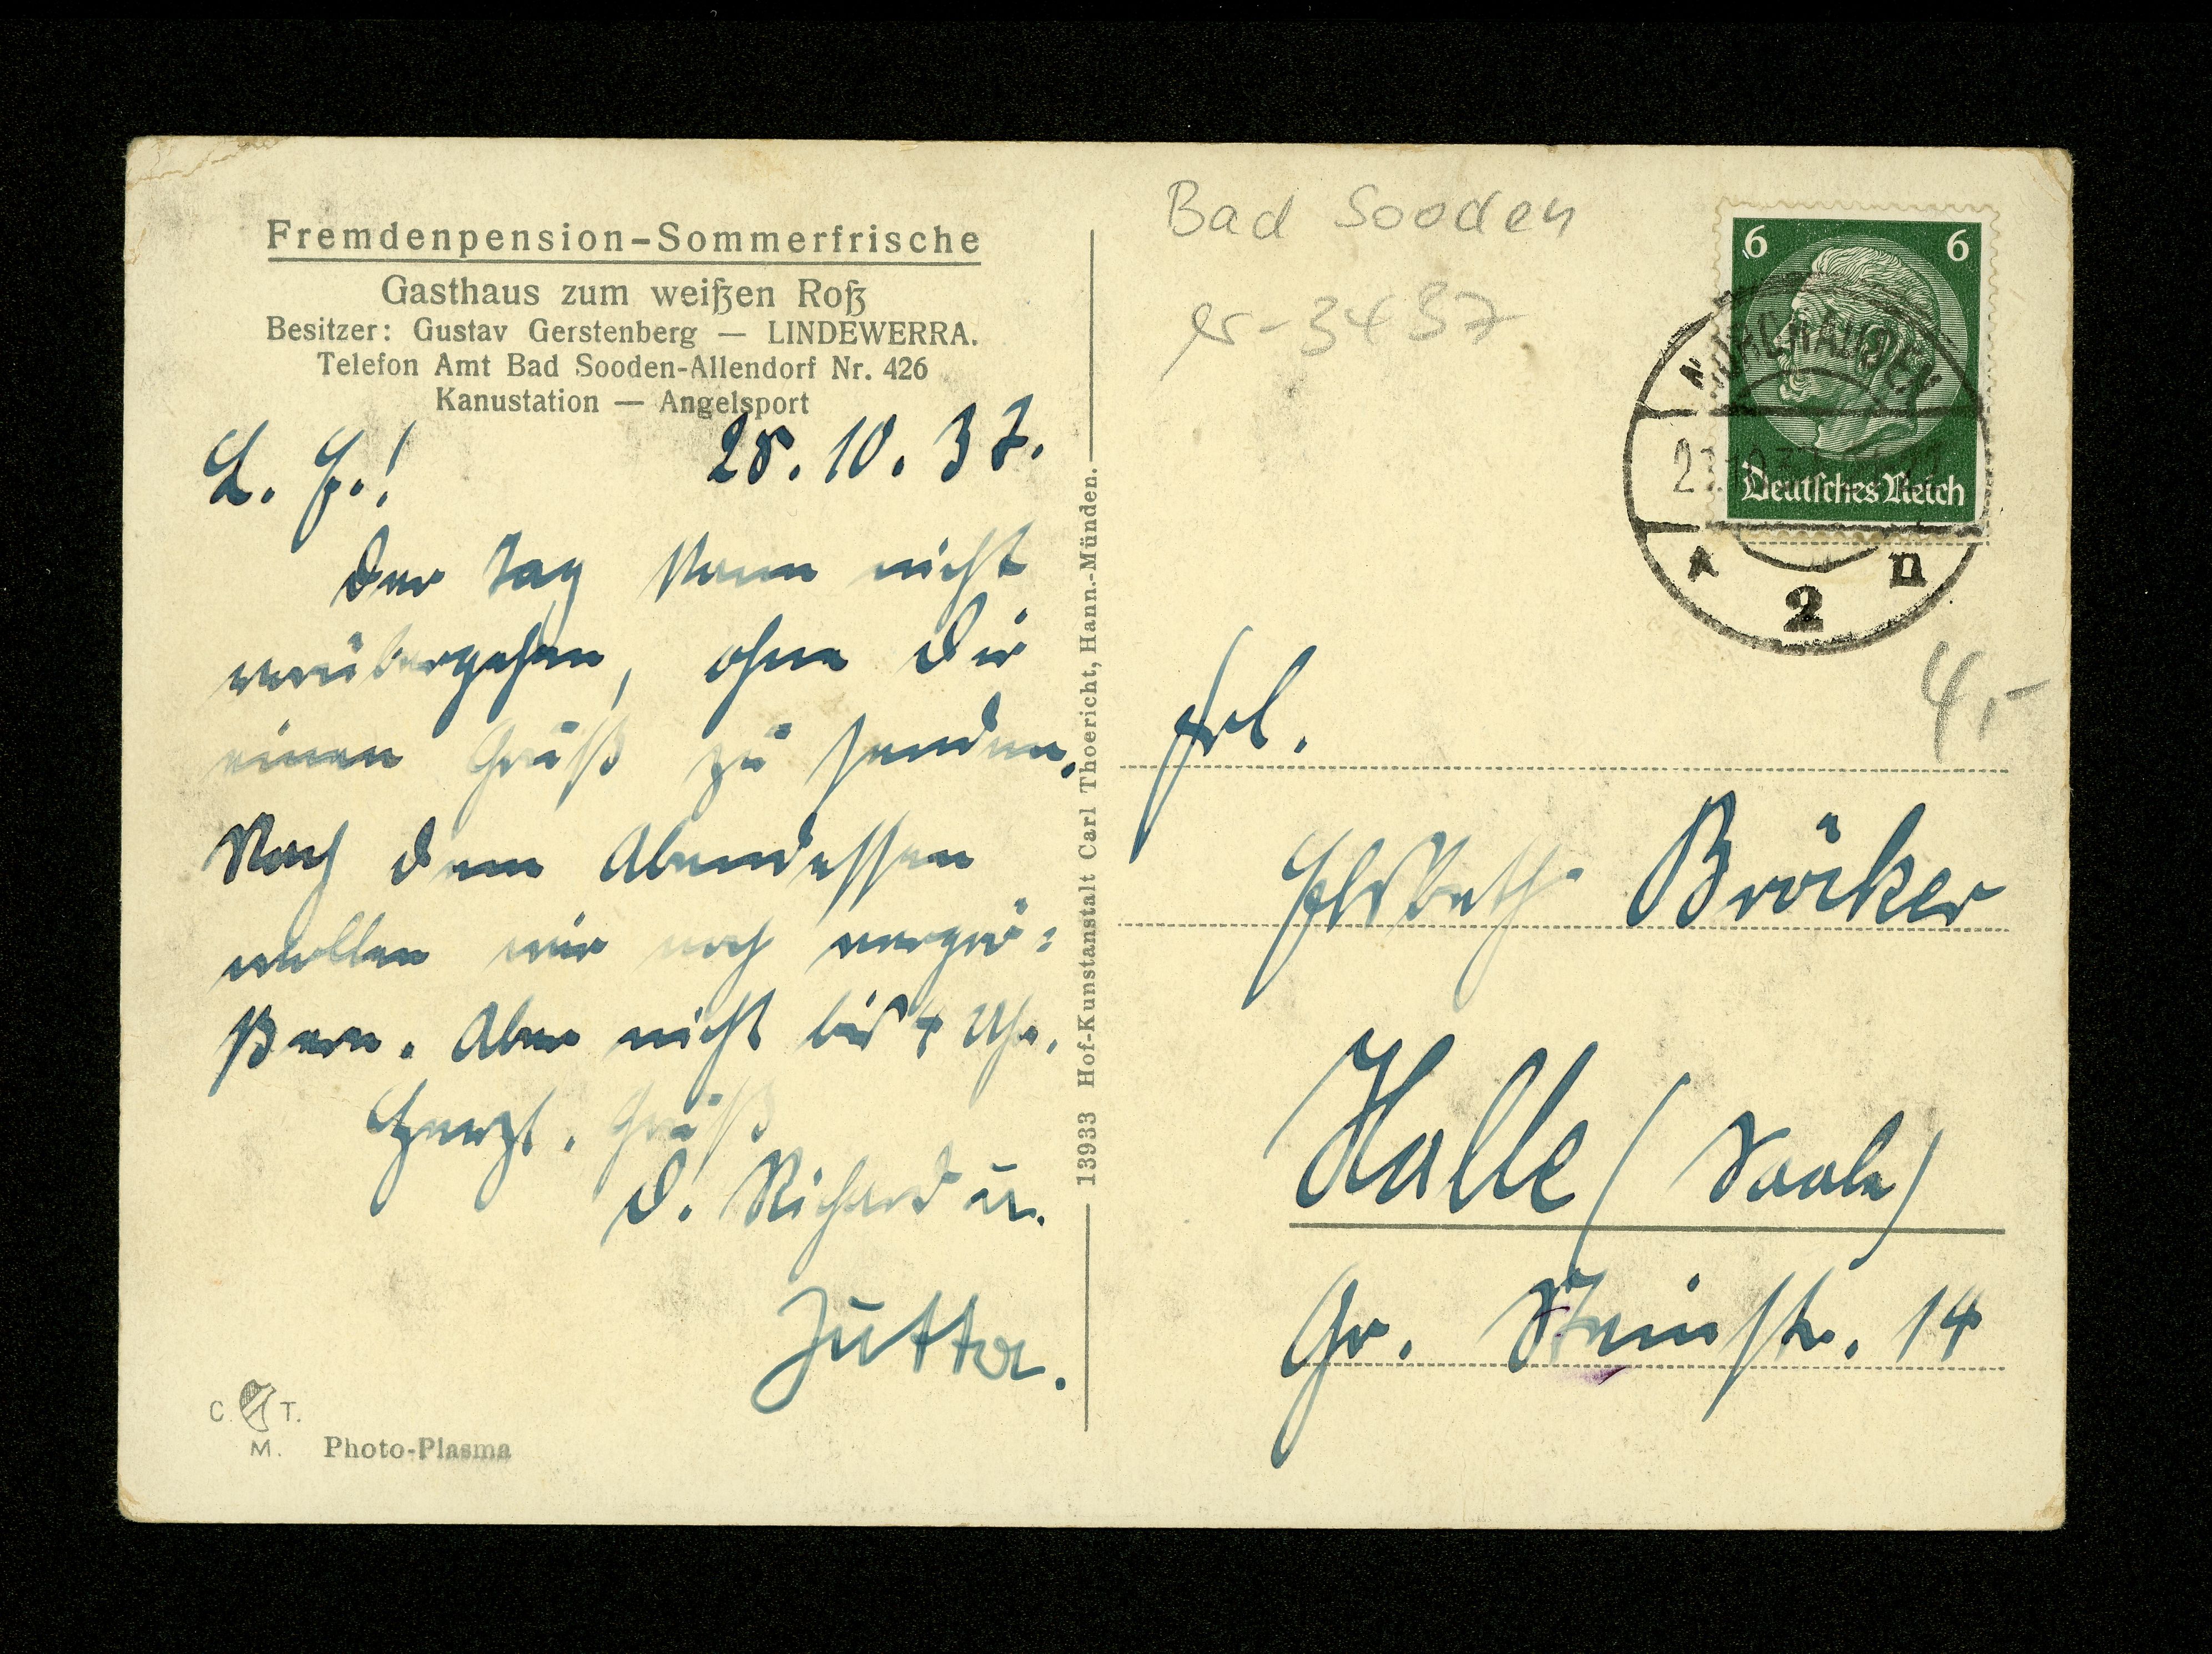 Fremdenpension-Sommerfrische
Gasthaus zum weißen Roß
Besitzer: Gustav Gerstenberg — LINDEWERRA.
Telefon Amt Bad Sooden-Allendorf Nr. 426
Kanustation — Angelsport
L. E.! 28.10.37.
Der Tag kann nicht
vorübergehen, ohne Dir
einen Gruß zu senden.
Nach dem Abendessen
wollen wir noch vergrö=
ßern. Aber nicht bis 4 Uhr.
Herzl. Gruß
D. Richard u.
Jutta.
C. T.
M. Photo-Plasma
13933 Hof-Kunstanstalt Carl Thoericht, Hann.-Münden.
Bad Sooden
3437
6 6
Deutsches Reich
NORDHAUSEN
2
4,-
Frl.
Elsbeth Bröcker
Halle (Saale)
Gr. Steinstr. 14